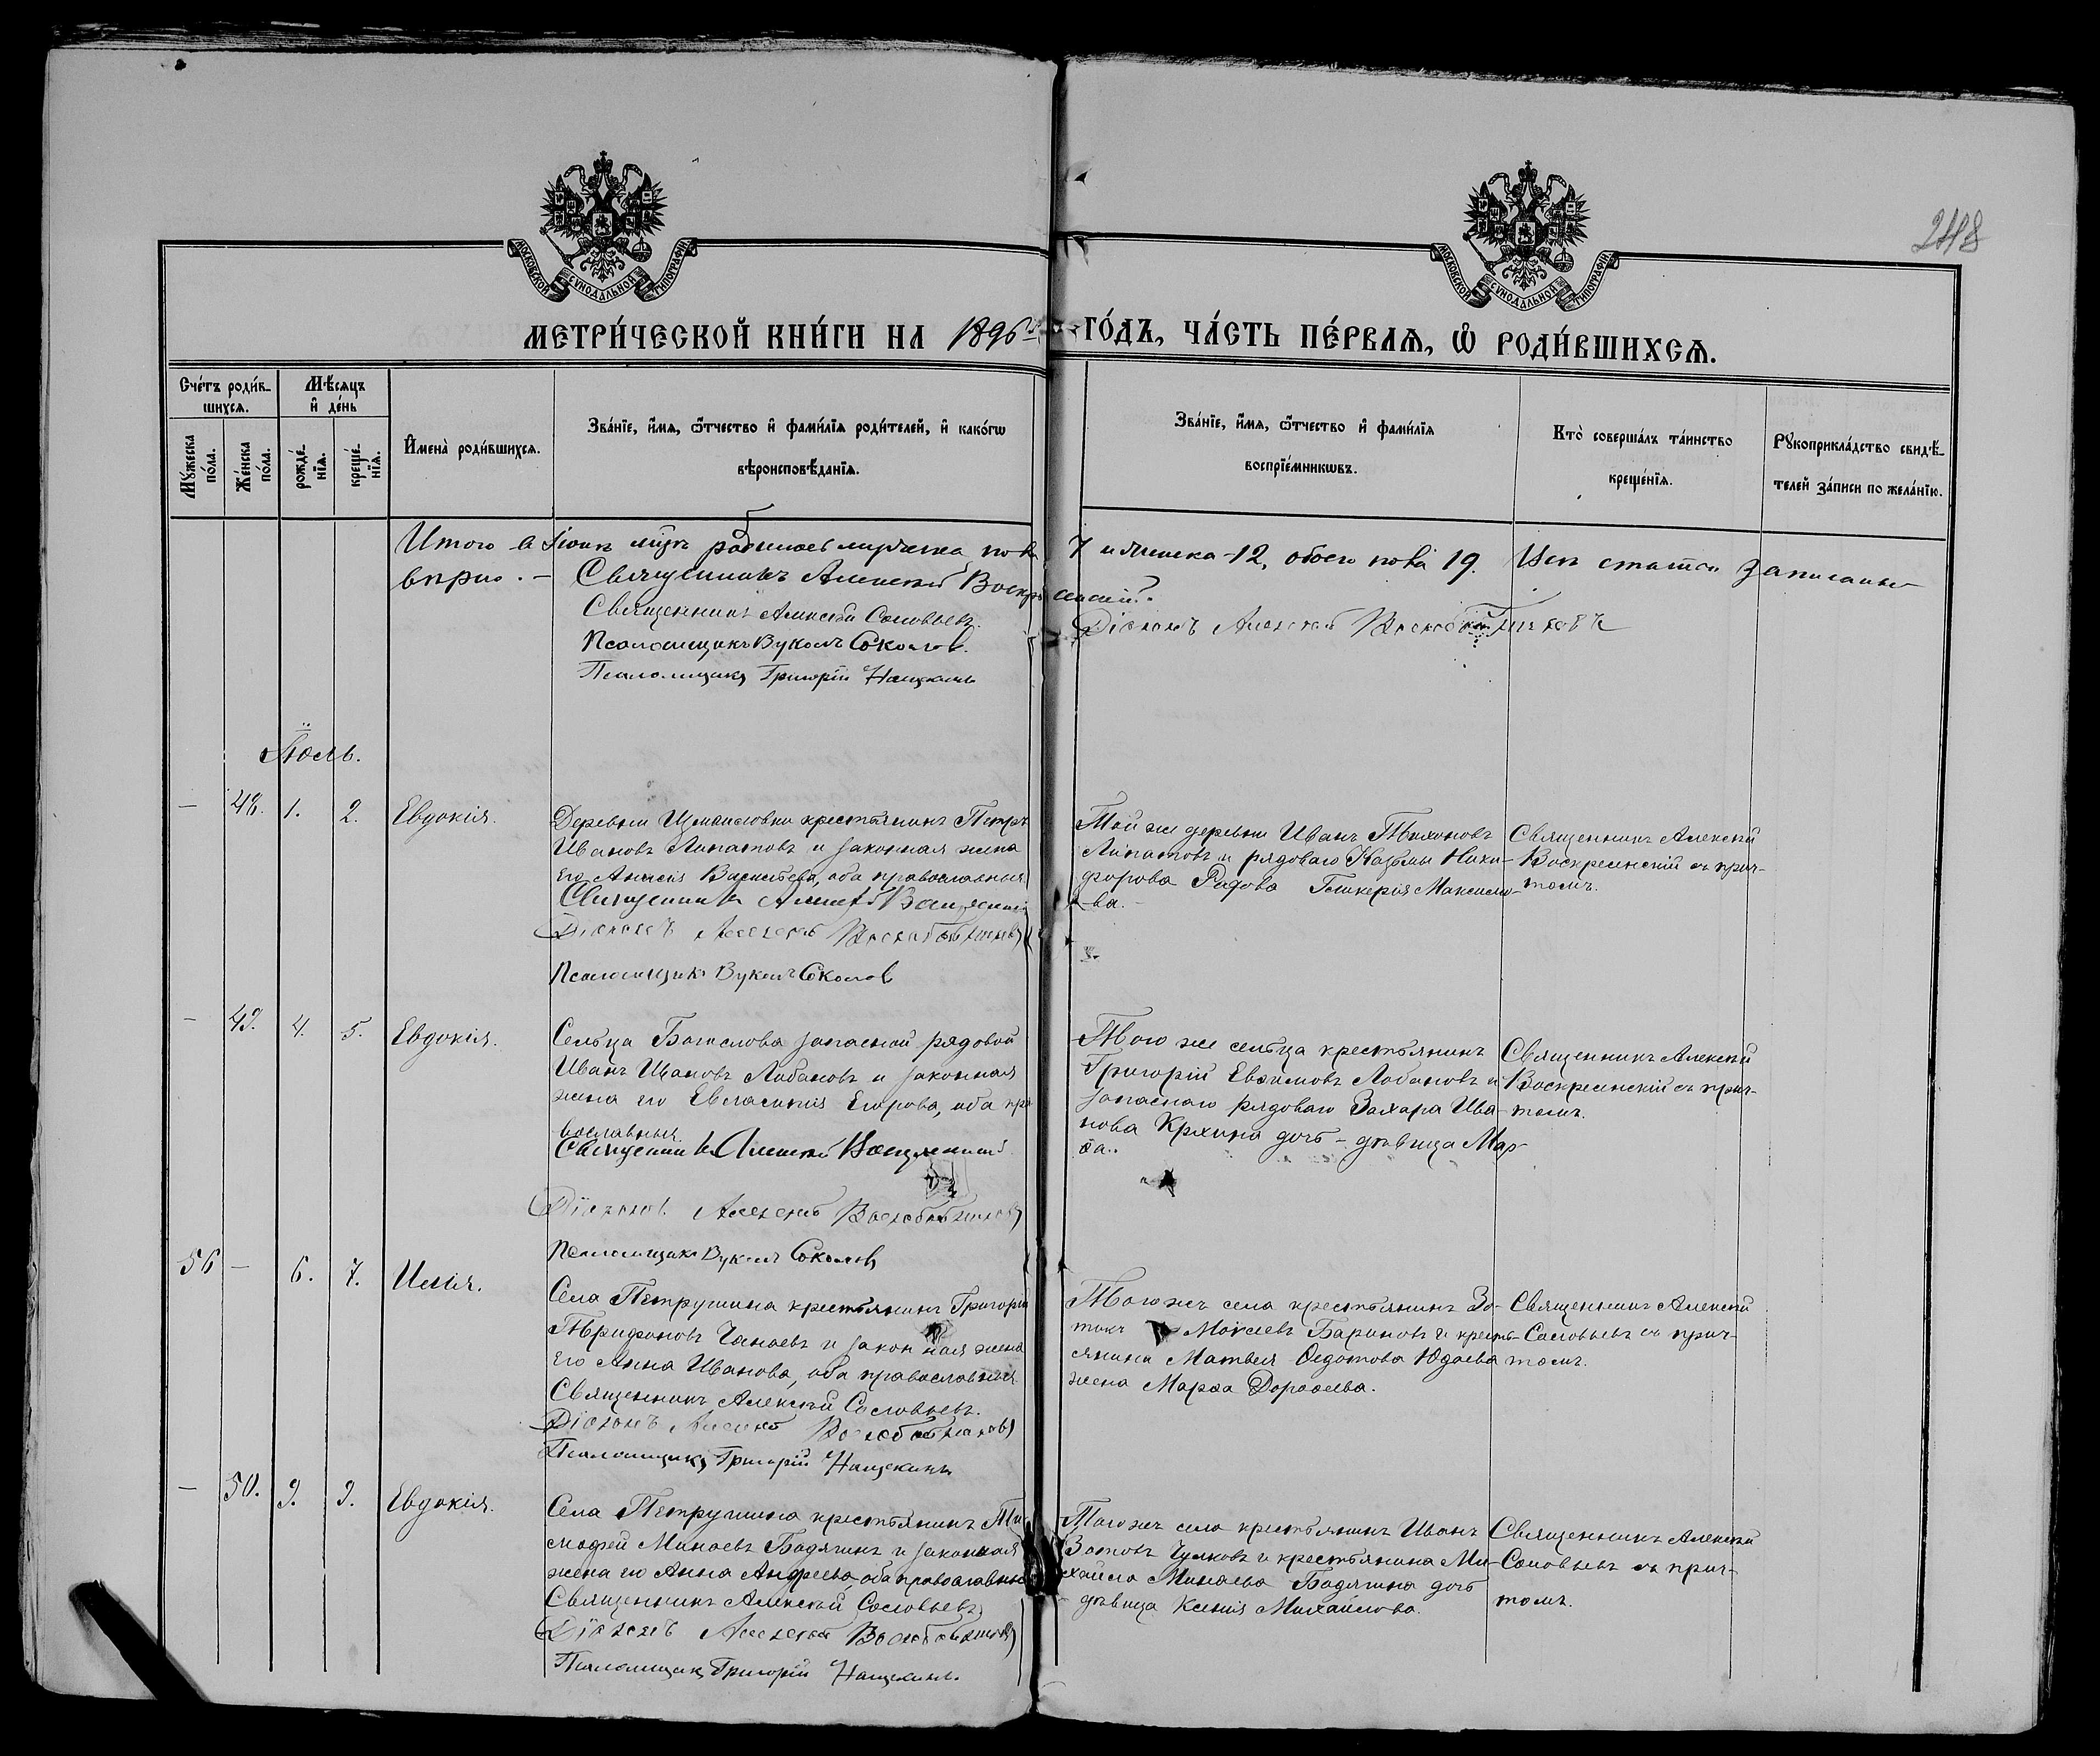 248
МОСКОВСКОЙ СУНОДАЛЬНОЙ ТИПОГРАФІИ
МОСКОВСКОЙ СУНОДАЛЬНОЙ ТИПОГРАФІИ
МЕТРИ́ЧЕСКОЙ КНИ́ГИ НА 1896 ГО́ДЪ, ЧА́СТЬ ПЕ́РВАѦ, Ѡ҆ РОДИ́ВШИХСѦ.
Сче́тъ роди́в-
шихсѧ.
Мꙋ́жеска по́ла.
Же́нска по́ла.
Мѣ́сѧцъ
и҆ де́нь
рожде́-
нїѧ.
креще́-
нїѧ.
И҆мена̀ роди́вшихсѧ.
Зва́нїе, и҆́мѧ, ѻ҆́тчество и҆ фами́лїѧ роди́телей, и҆ како́гѡ
вѣроисповѣ́данїѧ.
Зва́нїе, и҆́мѧ, ѻ҆́тчество и҆ фами́лїѧ
воспрїе́мникѡвъ.
Кто̀ соверша́лъ та́инство
креще́нїѧ.
Рꙋкоприкла́дство свидѣ́-
телей за́писи по жела́нїю.
Итого въ Іюнѣ мѣс. родилось мужска пола 7 и женска -12, обоего пола 19. Всѣ статьи записаны
вѣрно. — Священникъ Алексѣй Воскресенскій.
Священникъ Алексѣй Соловьевъ.
Діаконъ Алексѣй
Псаломщикъ Вуколъ Соколов.
Псаломщикъ Григорій Нащекинъ
Іюль.
— 48. 1. 2. Евдокія.
Деревни Измаиловки крестьянинъ Петръ
Ивановъ Липатовъ и законная жена
его Анисія Васильева, оба православныя
Священникъ Алексѣй Воскресенскій
Діаконъ Алексѣй
Псаломщикъ Вуколъ Соколов
Той же деревни Иванъ Тихоновъ
Липатовъ и рядоваго Козьмы Ники-
форова Гликерія Максимо-
ва.
Священникъ Алексѣй
Воскресенскій съ прич-
томъ.
— 49. 4. 5. Евдокія.
Сельца Богослова запасной рядовой
Иванъ Ивановъ Лобановъ и законная
жена его Евгасинія Егорова, оба пра
вославныя.
Священникъ Алексѣй Воскресенскій
Діаконъ Алексѣй
Псаломщикъ Вуколъ Соколов
Того же сельца крестьянинъ
Григорій Евѳимовъ Лобановъ и
запаснаго рядоваго Захара Ива-
нова Кряхина дочь - дѣвица Мар-
ѳа.
Священникъ Алексѣй
Воскресенскій съ прич-
томъ.
56 — 6. 7. Илія.
Села Петрушина крестьянинъ Григорій
Трифоновъ Чанаевъ и законная жена
его Анна Иванова, оба православныя
Священникъ Алексѣй Соловьевъ.
Діаконъ Алексѣй
Псаломщикъ Григорій Нащекинъ
Того же села крестьянинъ Зо-
тикъ Мокеевъ Бариновъ и кресть-
янина Матвея Ѳедотова Юдаева
жена Марѳа Дороѳеева.
Священникъ Алексѣй
Соловьевъ съ прич-
томъ.
— 50. 9. 9. Евдокія.
Села Петрушина крестьянинъ Ти
моѳей Минаевъ Бодягинъ и законная
жена его Анна Андреева, оба православные
Священникъ Алексѣй Соловьевъ
Діаконъ Алексѣй
Псаломщикъ Григорій Нащекинъ.
Того же села крестьянинъ Иванъ
Зотовъ Чулковъ и крестьянина Ми-
хаила Минаева Бодягина дочь
дѣвица Ксенія Михайлова.
Священникъ Алексѣй
Соловьевъ съ прич-
томъ.